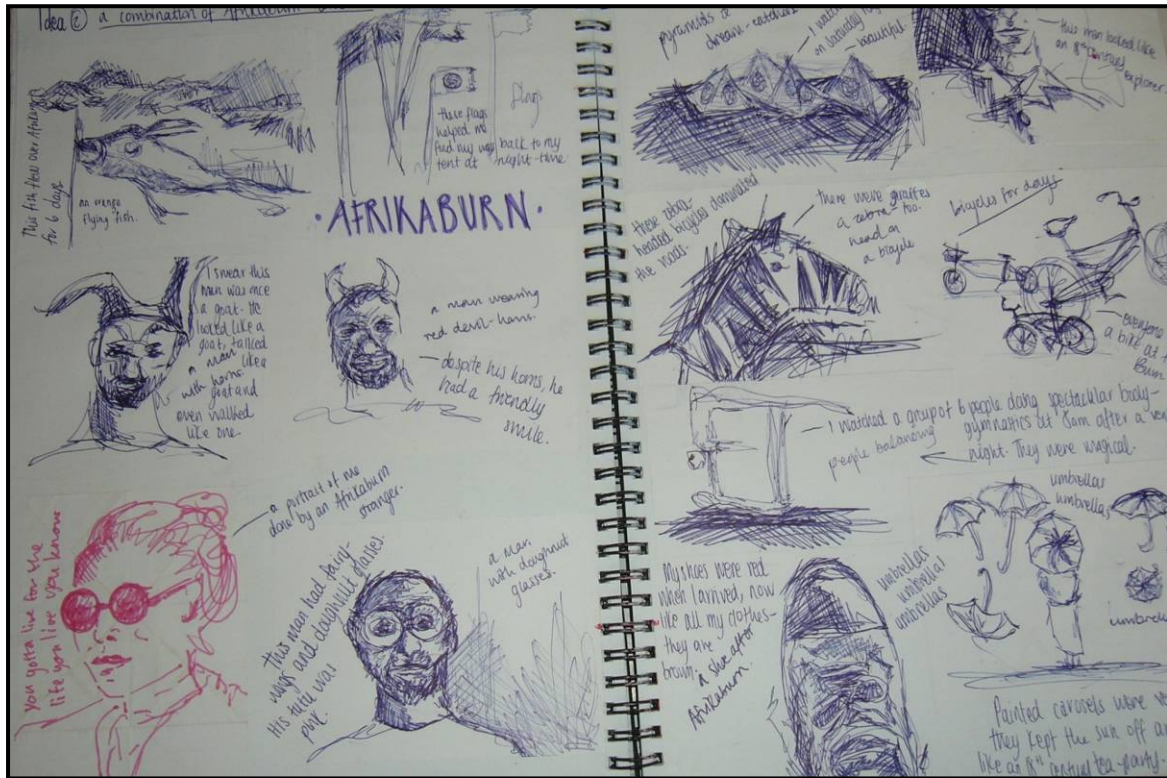 Idea 2 a combination of Afrikaburn
This fish flew over Afrikaburn
for 6 days
an orange
flying fish.
these flags
helped me
find my way
tent at
flags
back to my
night-time
·AFRIKABURN·
I swear this
man was once
a goat. He
looked like a
goat, talked
like a
goat and
even walked
like one.
a man
with horns.
a man wearing
red devil-horns.
despite his horns, he
had a friendly
smile.
you gotta live for the
life you live you know
a portrait of me
done by an Afrikaburn
stranger.
This man had fairy-
wings and doughnut glasses.
His tutu was
pink.
a man
with doughnut
glasses.
pyramids &
dream-catchers
I watch
on saturday
beautiful.
this man looked like
an 8th century explorer
these zebra-
headed bicycles dominated
the roads.
there were giraffes
too.
a zebra-
head on
a bicycle
bicycles for days
everyone
a bike at
Burn
I watched a group of 6 people doing spectacular body-
gymnastics at 8am after a
night. They were magical.
people balancing
My shoes were red
when I arrived, now
like all my clothes-
they are
brown.
a shoe after
Afrikaburn.
umbrellas
umbrellas
umbrellas
umbrellas
umbrellas
umbrella
Painted parasols were
they kept the sun off
like an 18th century tea-party.